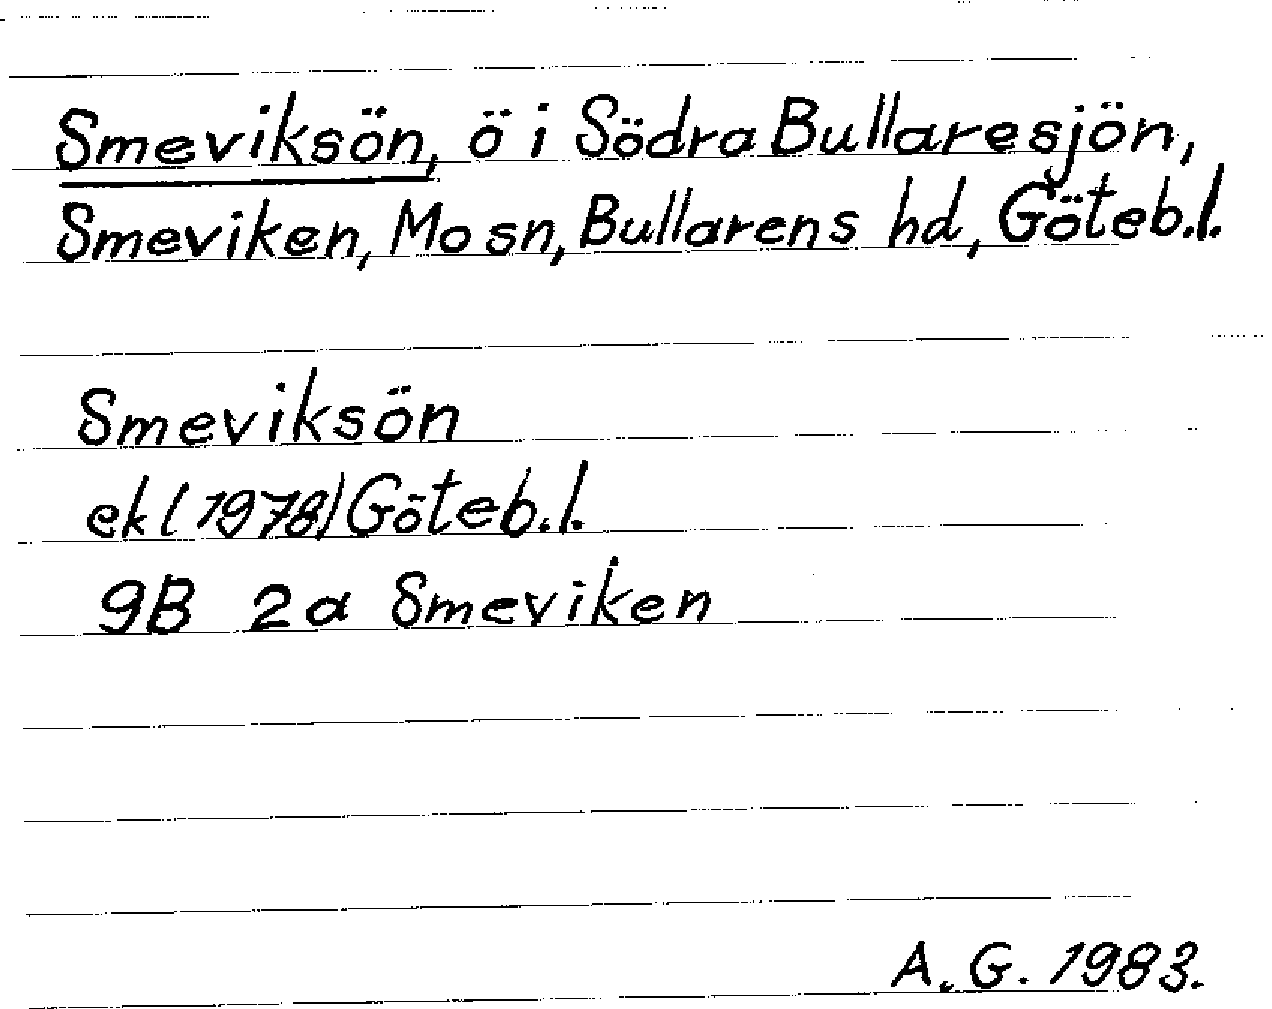 Smeviksön, ö i Södra Bullaresjön,
Smeviken, Mo sn, Bullarens hd, Göteb.l.
Smeviksön
ekl (1978) Göteb.l.
9B 2a Smeviken
A.G. 1983.